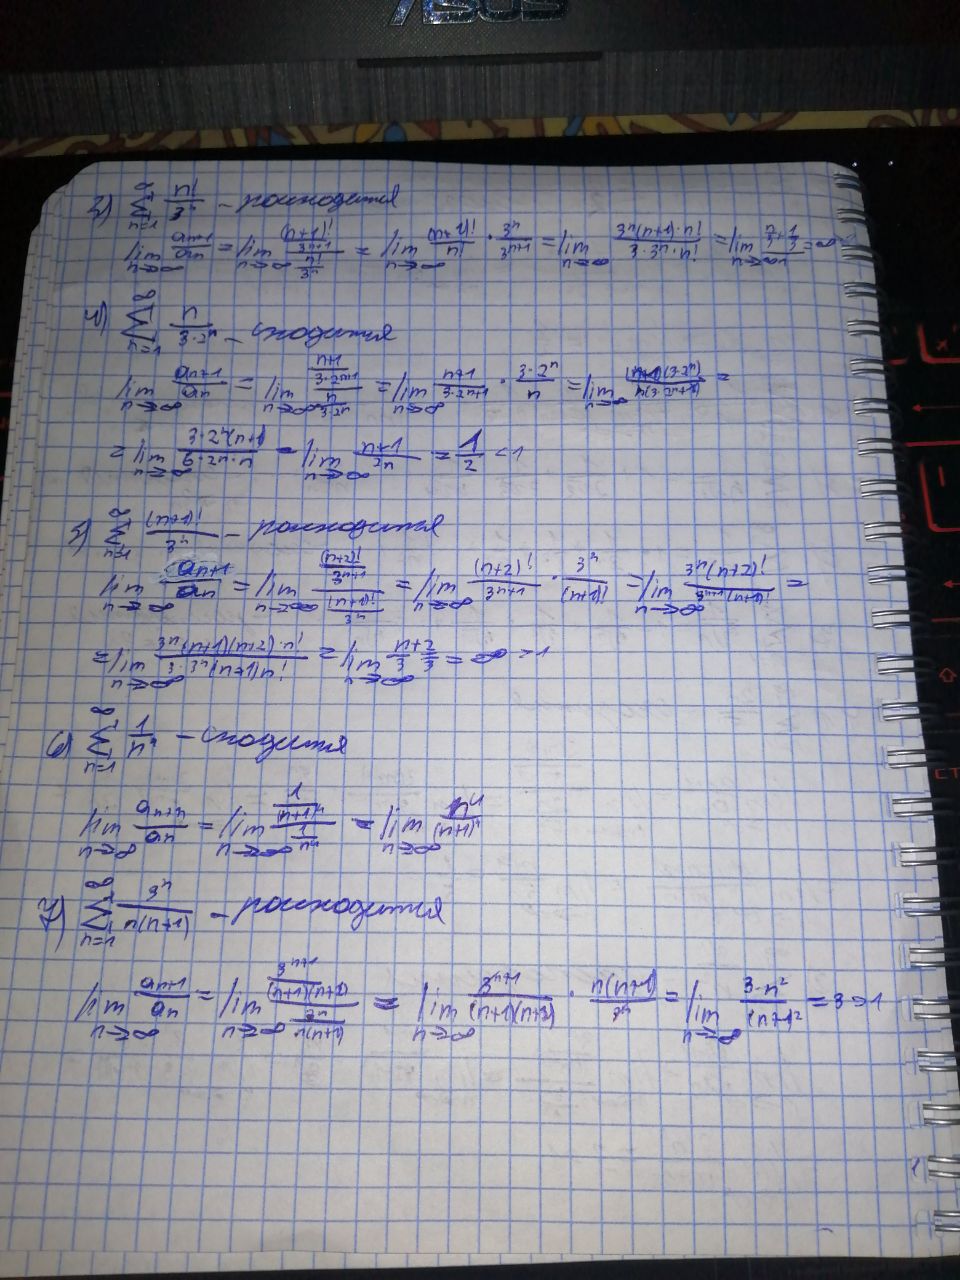 ASUS
3) ∑_{n=1}^{∞} n!/3ⁿ - расходится
lim_{n→∞} aₙ₊₁/aₙ = lim_{n→∞} ((n+1)!/3ⁿ⁺¹)/(n!/3ⁿ) = lim_{n→∞} (n+1)!/n! · 3ⁿ/3ⁿ⁺¹ = lim_{n→∞} 3ⁿ(n+1)·n!/(3·3ⁿ·n!) = lim_{n→∞} n/3 + 1/3 = ∞
4) ∑_{n=1}^{∞} n/(3·2ⁿ) - сходится
lim_{n→∞} aₙ₊₁/aₙ = lim_{n→∞} ((n+1)/(3·2ⁿ⁺¹))/(n/(3·2ⁿ)) = lim_{n→∞} (n+1)/(3·2ⁿ⁺¹) · (3·2ⁿ)/n = lim_{n→∞} (n+1)(3·2ⁿ)/(n(3·2ⁿ⁺¹)) =
= lim_{n→∞} 3·2ⁿ(n+1)/(6·2ⁿ·n) = lim_{n→∞} (n+1)/2n = 1/2 < 1
5) ∑_{n=1}^{∞} (n+1)!/3ⁿ - расходится
lim_{n→∞} aₙ₊₁/aₙ = lim_{n→∞} ((n+2)!/3ⁿ⁺¹)/((n+1)!/3ⁿ) = lim_{n→∞} (n+2)!/3ⁿ⁺¹ · 3ⁿ/(n+1)! = lim_{n→∞} 3ⁿ(n+2)!/(3ⁿ⁺¹(n+1)!) =
= lim_{n→∞} 3ⁿ(n+1)(n+2)·n!/(3·3ⁿ(n+1)n!) = lim_{n→∞} n/3 + 2/3 = ∞ > 1
6) ∑_{n=1}^{∞} 1/n⁴ - сходится
lim_{n→∞} aₙ₊₁/aₙ = lim_{n→∞} (1/(n+1)⁴)/(1/n⁴) = lim_{n→∞} n⁴/(n+1)⁴
7) ∑_{n=1}^{∞} 3ⁿ/(n(n+1)) - расходится
lim_{n→∞} aₙ₊₁/aₙ = lim_{n→∞} (3ⁿ⁺¹/((n+1)(n+2)))/(3ⁿ/(n(n+1))) = lim_{n→∞} 3ⁿ⁺¹/((n+1)(n+2)) · n(n+1)/3ⁿ = lim_{n→∞} 3·n²/(n+1)² = 3 > 1